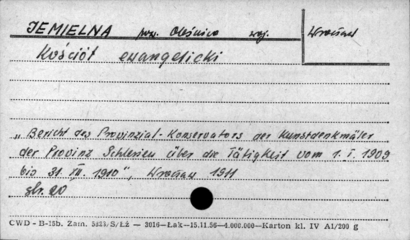 JEMIELNA pow. Oleśnica woj. Wrocław
Kościół ewangelicki
„Bericht des Provinzial-Konservators der Kunstdenkmäler
der Provinz Schlesien über die Tätigkeit vom 1. I. 1909
bis 31. XII. 1910", Wrocław 1911
str. 20
CWD - B-15b. Zam. S/Łż — 3016—Łak—15.11.56—4.000.000—Karton kl. IV A1/200 g